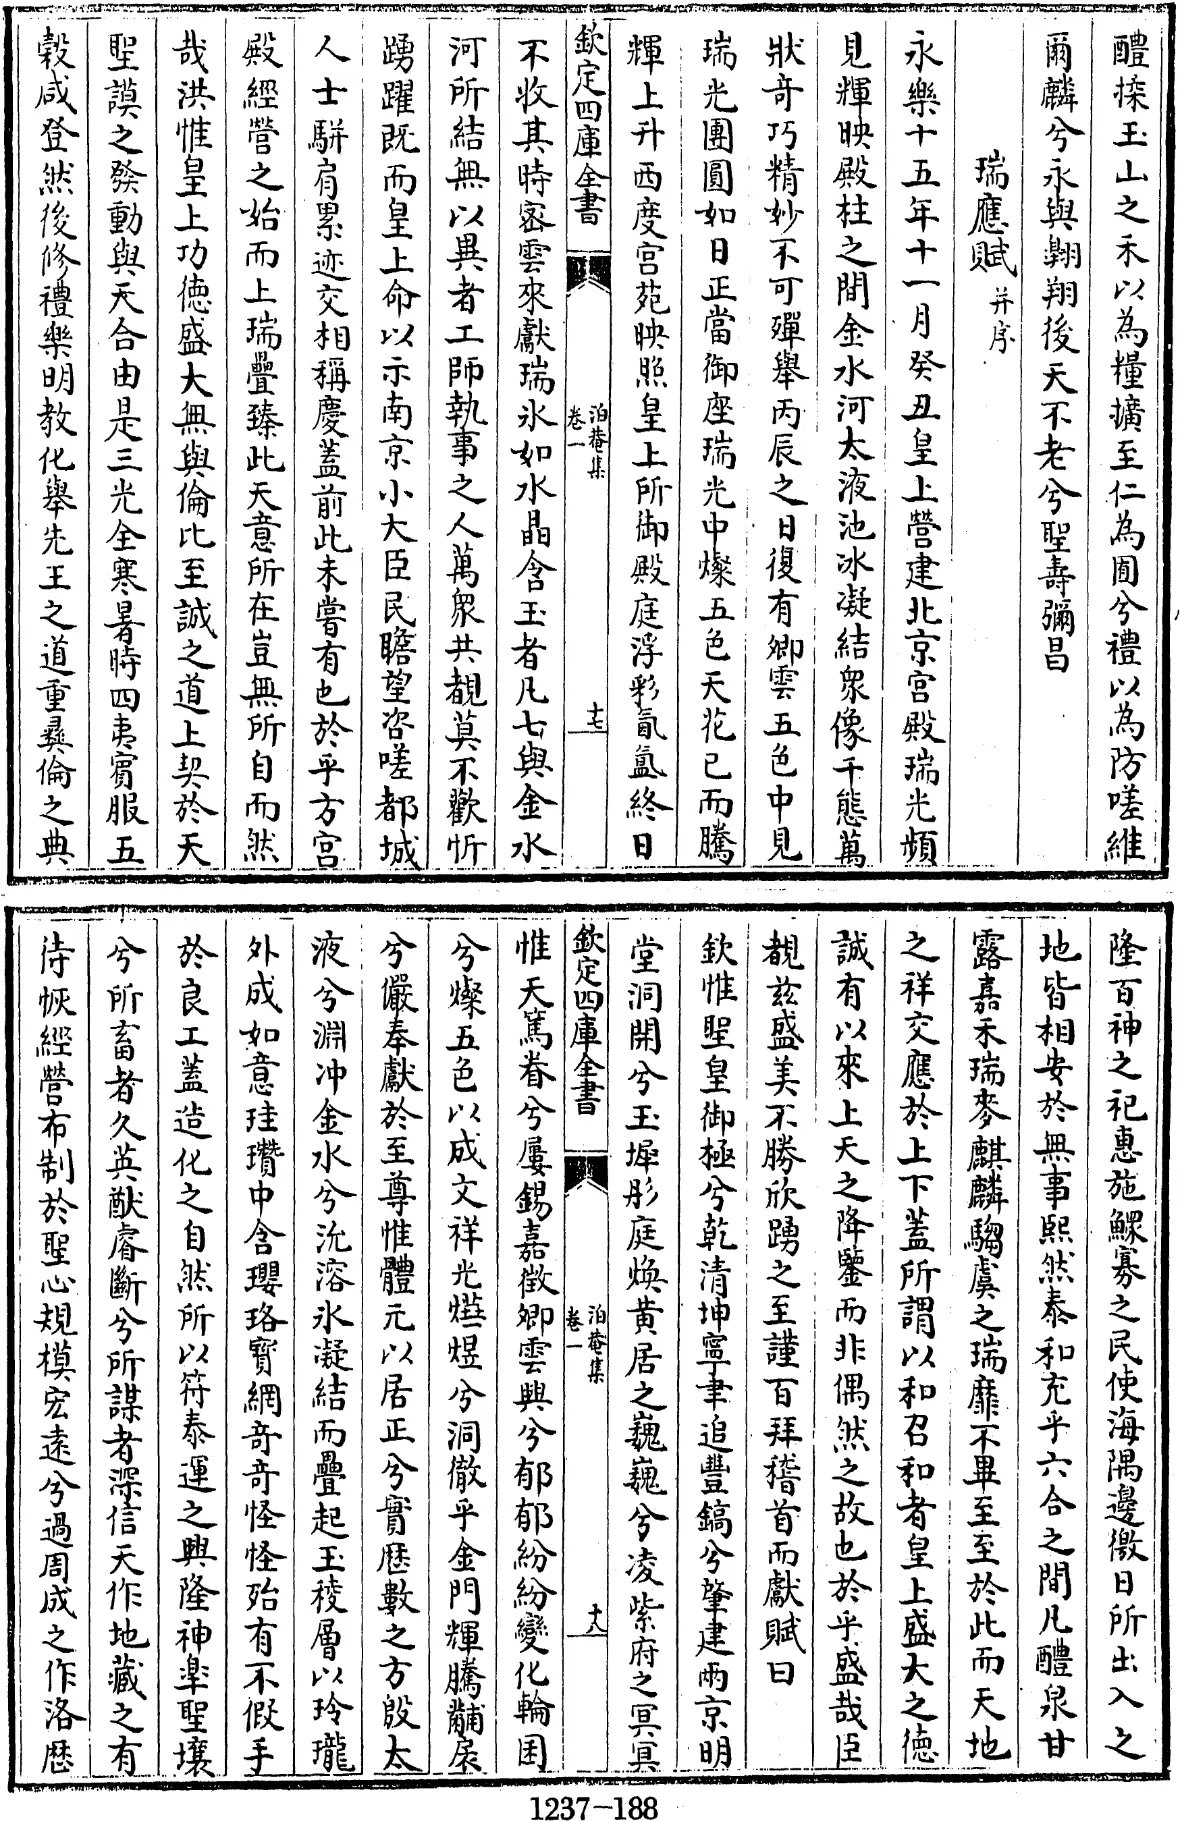 醴採玉山之禾以為糧擴至仁為囿兮禮以為防嗟維
爾麟兮永與翺翔後天不老兮聖壽彌昌
瑞應賦并序
永樂十五年十一月癸丑皇上營建北京宮殿瑞光頻
見輝映殿柱之間金水河太液池冰凝結衆像千態萬
狀竒巧精妙不可殫舉丙辰之日復有卿雲五色中見
瑞光團圓如日正當御座瑞光中燦五色天花已而騰
輝上升西度宮苑映照皇上所御殿庭浮彩氤氳終日
欽定四庫全書
泊菴集
卷一
十七
不收其時密雲來獻瑞氷如水晶含玉者凡七與金水
河所結無以異者工師執事之人萬衆共覩莫不歡忻
踴躍既而皇上命以示南京小大臣民瞻望咨嗟都城
人士駢肩累迹交相稱慶蓋前此未嘗有也於乎方宮
殿經營之始而上瑞疊臻此天意所在豈無所自而然
哉洪惟皇上功徳盛大無與倫比至誠之道上契於天
聖謨之發動與天合由是三光全寒暑時四夷賓服五
穀咸登然後修禮樂明教化舉先王之道重彞倫之典
隆百神之祀惠施鰥寡之民使海隅邊徼日所出入之
地皆相安於無事熙然泰和充乎六合之間凡醴泉甘
露嘉禾瑞麥麒麟騶虞之瑞靡不畢至至於此而天地
之祥交應於上下蓋所謂以和召和者皇上盛大之徳
誠有以來上天之降鑒而非偶然之故也於乎盛哉臣
覩兹盛美不勝欣踴之至謹百拜稽首而獻賦曰
欽惟聖皇御極兮乾清坤寧聿追豐鎬兮肇建兩京明
堂洞開兮玉墀彤庭煥黄居之巍巍兮凌紫府之冥冥
欽定四庫全書
泊菴集
卷一
十八
惟天篤眷兮屢錫嘉徵卿雲興兮郁郁紛紛變化輪囷
兮燦五色以成文祥光爀煜兮洞徹乎金門輝騰黼扆
兮儼奉獻於至尊惟體元以居正兮實歴數之方殷太
液兮淵冲金水兮沇溶氷凝結而疊起玉稜層以玲瓏
外成如意珪瓚中含瓔珞寳網竒竒怪怪殆有不假手
於良工蓋造化之自然所以符泰運之興隆神臯聖壤
兮所畜者久英猷睿斷兮所謀者深信天作地藏之有
待恢經營布制於聖心規模宏遠兮過周成之作洛歴
1237-188